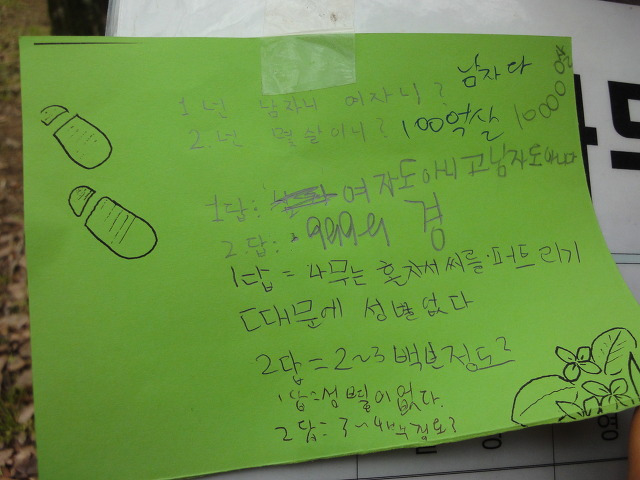 남자다
1 넌 남자니 여자니?
2. 넌 몇살이니? 100억살 10000살
1답: 여자도아니고남자도아니다
2.답: 경
1답 = 나무는 혼자서 씨를 퍼트리기
때문에 성별없다
2답 = 2~3백년정도?
1답=성별이없다.
2답=3~4백년정도?